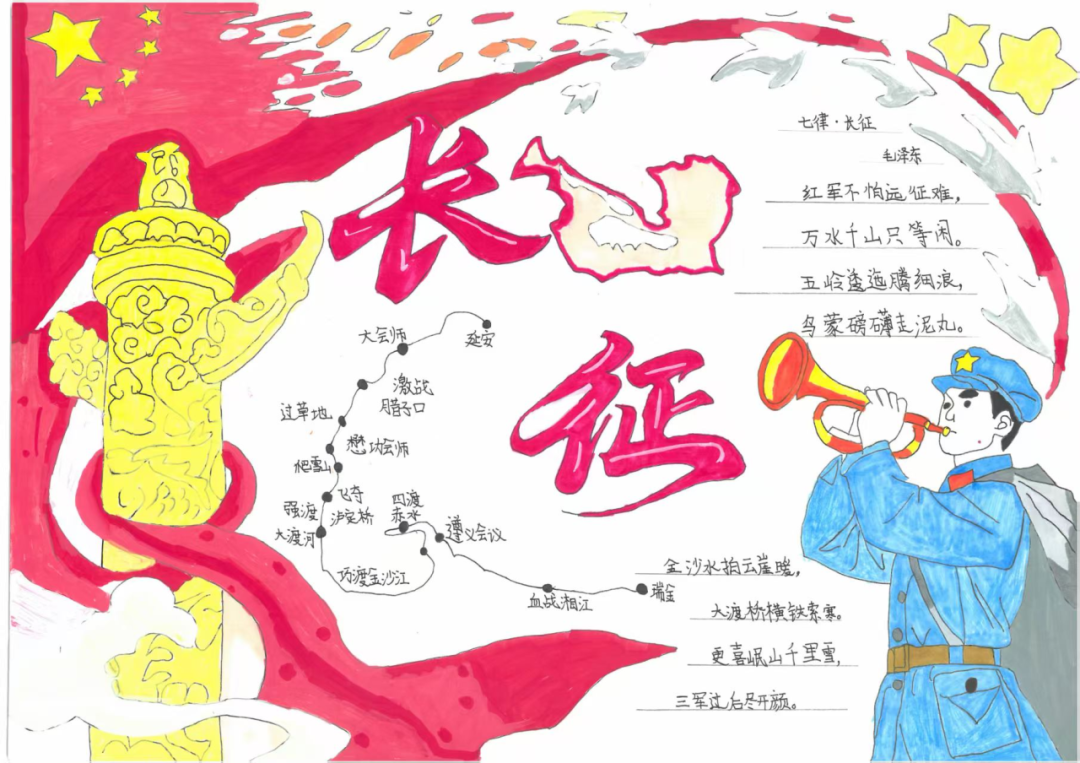 长征
七律·长征
毛泽东
红军不怕远征难，
万水千山只等闲。
五岭逶迤腾细浪，
乌蒙磅礴走泥丸。
大会师
延安
激战
腊子口
过草地
懋功会师
爬雪山
飞夺
泸定桥
强渡
大渡河
四渡
赤水
遵义会议
巧渡金沙江
血战湘江
瑞金
金沙水拍云崖暖，
大渡桥横铁索寒。
更喜岷山千里雪，
三军过后尽开颜。